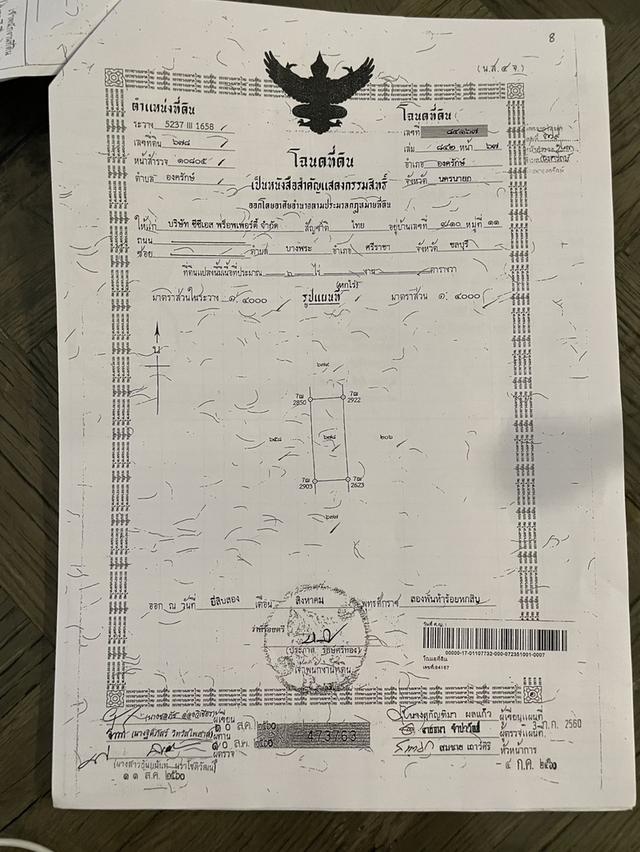 8
(น.ส. ๔ จ.)
ตำแหน่งที่ดิน
ระวาง 5237 III 1658
เลขที่ดิน ๖๗๘
หน้าสำรวจ ๑๐๘๐๕
ตำบล องครักษ์
โฉนดที่ดิน
เลขที่ ๘๔๑๖๗
เล่ม ๘๔๒ หน้า ๖๗
อำเภอ องครักษ์
จังหวัด นครนายก
โฉนดที่ดิน
เป็นหนังสือสำคัญแสดงกรรมสิทธิ์
ออกโดยอาศัยอำนาจตามประมวลกฎหมายที่ดิน
ให้แก่ บริษัท ซีซีเอส พร็อพเพอร์ตี้ จำกัด สัญชาติ ไทย อยู่บ้านเลขที่ ๙/๑๐ หมู่ที่ ๑๑
ถนน
ซอย ตำบล บางพระ อำเภอ ศรีราชา จังหวัด ชลบุรี
ที่ดินแปลงนี้มีเนื้อที่ประมาณ ๖ ไร่ งาน ตารางวา
(หกไร่)
มาตราส่วนในระวาง ๑: ๔๐๐๐ รูปแผนที่ มาตราส่วน ๑: ๔๐๐๐
น
7ฒ 2850
7ฒ 2922
๖๗๘
๒๐๖
7ฒ 2903
7ฒ 2623
๖๗๗
ออก ณ วันที่ ยี่สิบสอง เดือน สิงหาคม พุทธศักราช สองพันห้าร้อยหกสิบ
ว่าที่ร้อยตรี
เจ้าพนักงานที่ดิน
00000-17-01107732-000-072351001-0007
โฉนดที่ดิน
เลขที่.84167
ผู้เขียน
๑๐ ส.ค. ๒๕๖๐
ผู้ทาน
ผู้ตรวจ
๑๑ ส.ค. ๒๕๖๐
473763
ผลแก้ว ผู้เขียนแผนที่
3 ก.ค. 2560
ผู้ตรวจแผนที่
หัวหน้าการ
๔ ก.ค. ๒๕๖๐